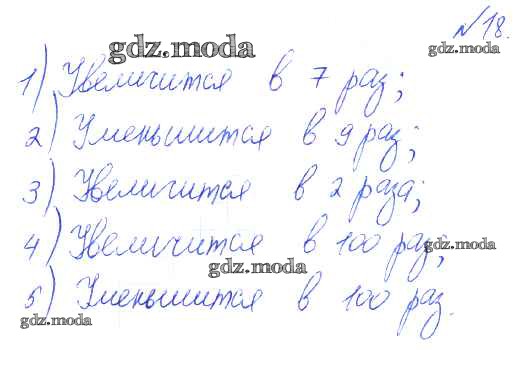 №18.
gdz.moda
gdz.moda
1) Увеличится в 7 раз;
2) Уменьшится в 9 раз;
3) Увеличится в 2 раза;
4) Увеличится в 100 раз;
gdz.moda
gdz.moda
5) Уменьшится в 100 раз.
gdz.moda